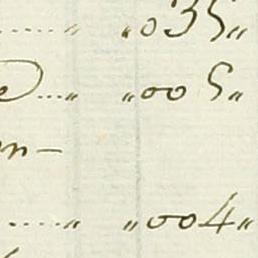 ....." "035"
..." "005"
n—
....." "004"